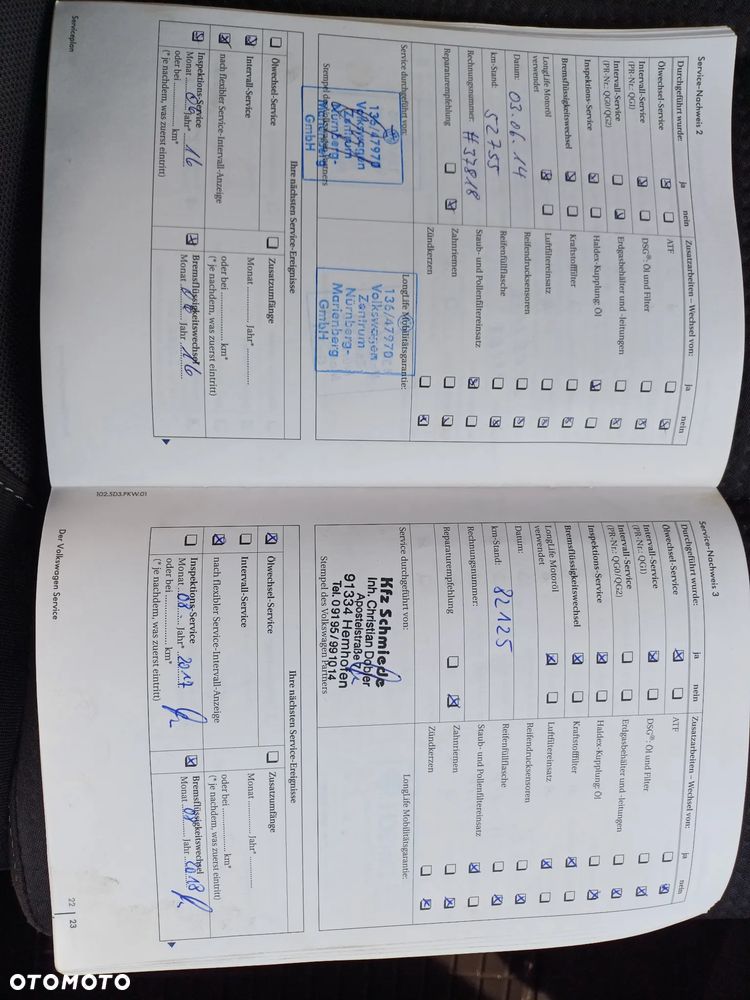 Service-Nachweis 2
Durchgeführt wurde: ja nein
Ölwechsel-Service
Intervall-Service
(PR-Nr.: QG1)
Intervall-Service
(PR-Nr.: QG0/QG2)
Inspektions-Service
Bremsflüssigkeitswechsel
LongLife Motoröl
verwendet
Datum: 03.06.14
km-Stand: 52755
Rechnungsnummer: #37818
Reparaturempfehlung
Zusatzarbeiten – Wechsel von: ja nein
ATF
DSG®: Öl und Filter
Erdgasbehälter und -leitungen
Haldex-Kupplung: Öl
Kraftstofffilter
Luftfiltereinsatz
Reifendrucksensoren
Reifenfüllflasche
Staub- und Pollenfiltereinsatz
Zahnriemen
Zündkerzen
Service durchgeführt von:
136/47970
Volkswagen
Zentrum
Nürnberg-
Marienberg
GmbH
LongLife Mobilitätsgarantie:
136/47970
Volkswagen
Zentrum
Nürnberg-
Marienberg
GmbH
Ihre nächsten Service-Ereignisse
Ölwechsel-Service
Intervall-Service
nach flexibler Service-Intervall-Anzeige
Inspektions-Service
Monat 06 Jahr* 16
oder bei km*
(*je nachdem, was zuerst eintritt)
Zusatzumfänge
Monat Jahr*
oder bei km*
(*je nachdem, was zuerst eintritt)
Bremsflüssigkeitswechsel
Monat 06 Jahr 16
Serviceplan
102.5D3.PKW.01
Service-Nachweis 3
Durchgeführt wurde: ja nein
Ölwechsel-Service
Intervall-Service
(PR-Nr.: QG1)
Intervall-Service
(PR-Nr.: QG0/QG2)
Inspektions-Service
Bremsflüssigkeitswechsel
LongLife Motoröl
verwendet
Datum:
km-Stand: 82125
Rechnungsnummer:
Reparaturempfehlung
Zusatzarbeiten – Wechsel von: ja nein
ATF
DSG®: Öl und Filter
Erdgasbehälter und -leitungen
Haldex-Kupplung: Öl
Kraftstofffilter
Luftfiltereinsatz
Reifendrucksensoren
Reifenfüllflasche
Staub- und Pollenfiltereinsatz
Zahnriemen
Zündkerzen
Service durchgeführt von:
Kfz Schmiede
Inh. Christian Dobler
Apostelstraße 7
91334 Hemhofen
Tel. 09195/991014
Stempel des Volkswagen Partners
LongLife Mobilitätsgarantie:
Ihre nächsten Service-Ereignisse
Ölwechsel-Service
Intervall-Service
nach flexibler Service-Intervall-Anzeige
Inspektions-Service
Monat 08 Jahr* 2017
oder bei km*
(*je nachdem, was zuerst eintritt)
Zusatzumfänge
Monat Jahr*
oder bei km*
(*je nachdem, was zuerst eintritt)
Bremsflüssigkeitswechsel
Monat 08 Jahr 2018
Der Volkswagen Service
22 | 23
OTOMOTO